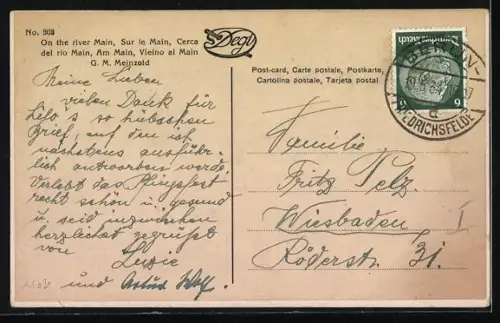 No. 303
On the river Main, Sur le Main, Cerca
del rio Main, Am Main, Vieino al Main
G. M. Meinzold
Degi
Post-card, Carte postale, Postkarte,
Cartolina postale, Tarjeta postal
BERLIN-
FRIEDRICHSFELDE
d
Deutsches Reich
6
Meine Lieben
vielen Dank für
Lilo's so hübschen
Brief, auf den ich
nächstens ausführ-
lich antworten werde.
Verlebt das Pfingstfest
recht schön u. gesund
u. seid inzwischen
herzlichst gegrüßt
von
Luzie
und Artur
Familie
Fritz Pelz.
Wiesbaden
I
Röderstr. 31.